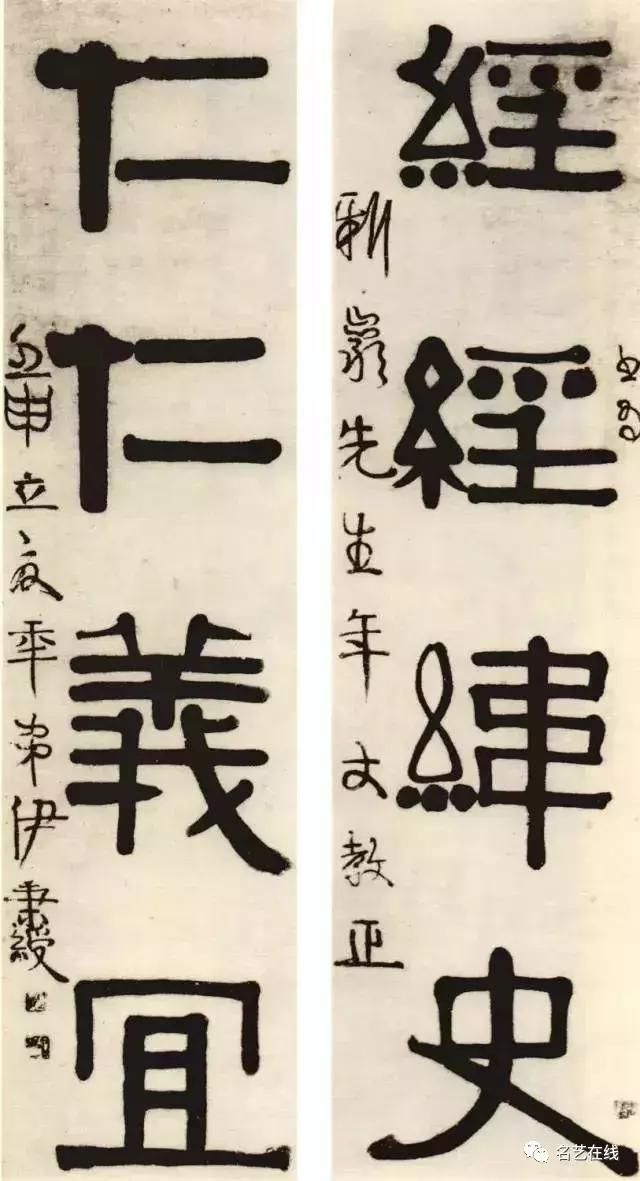 經經緯史
先生年丈教正
仁仁義宜
申立夏年弟伊秉綬
名艺在线